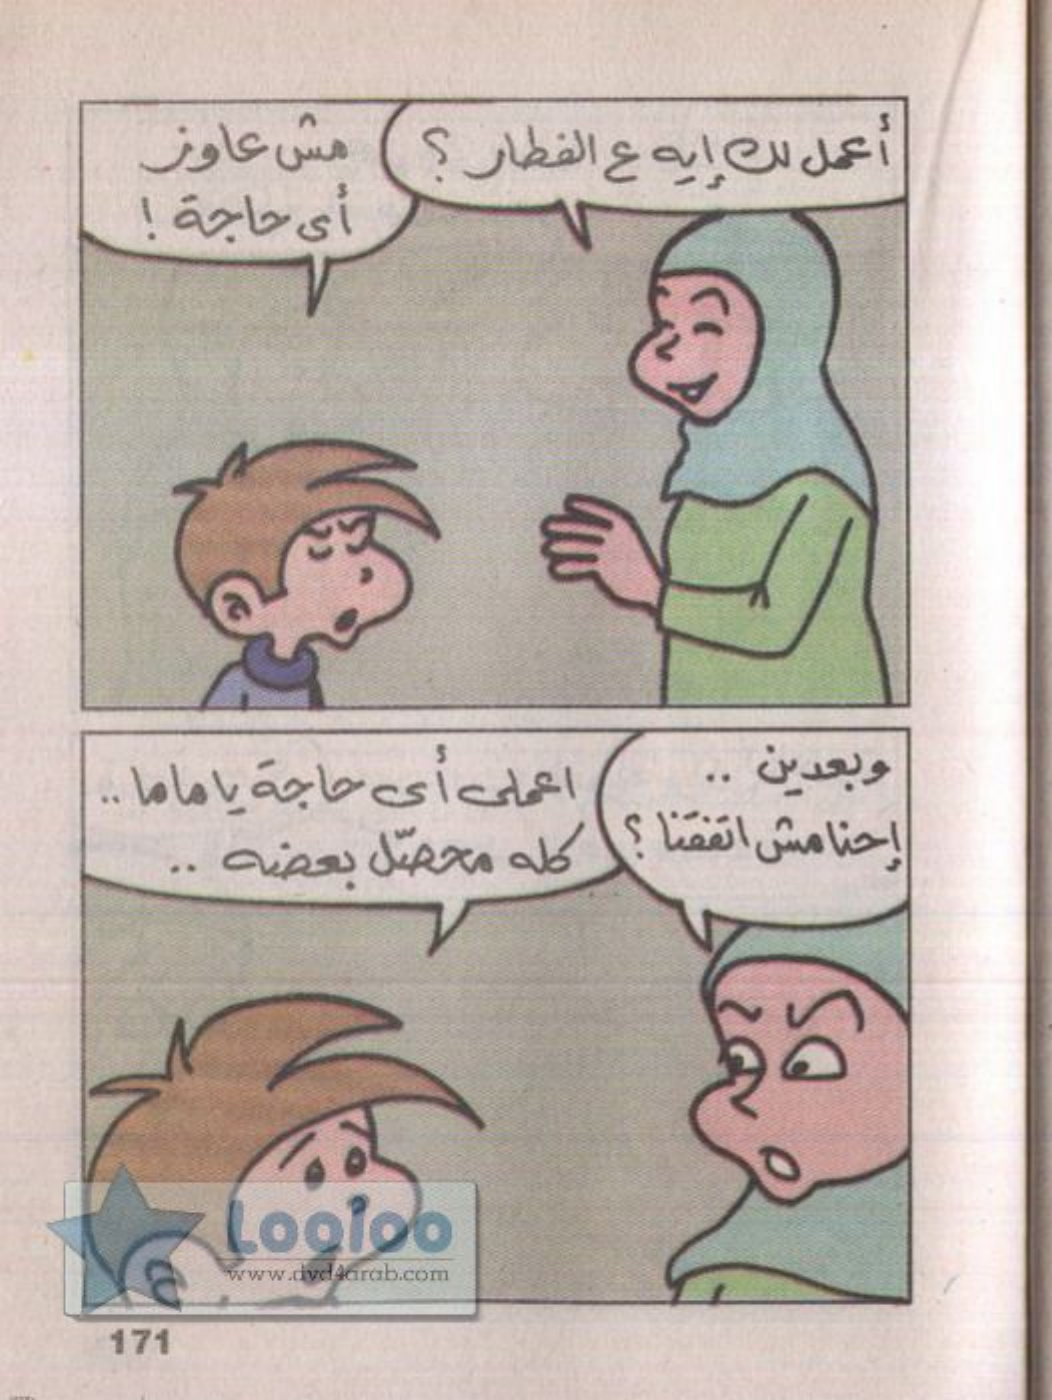 أعمل لك إيه ع الفطار ؟
مش عاوز
أى حاجة !
وبعدين ..
إحنا مش اتفقنا ؟
اعملى أى حاجة يا ماما ..
كله محصّل بعضه ..
Looloo
www.dvd4arab.com
171